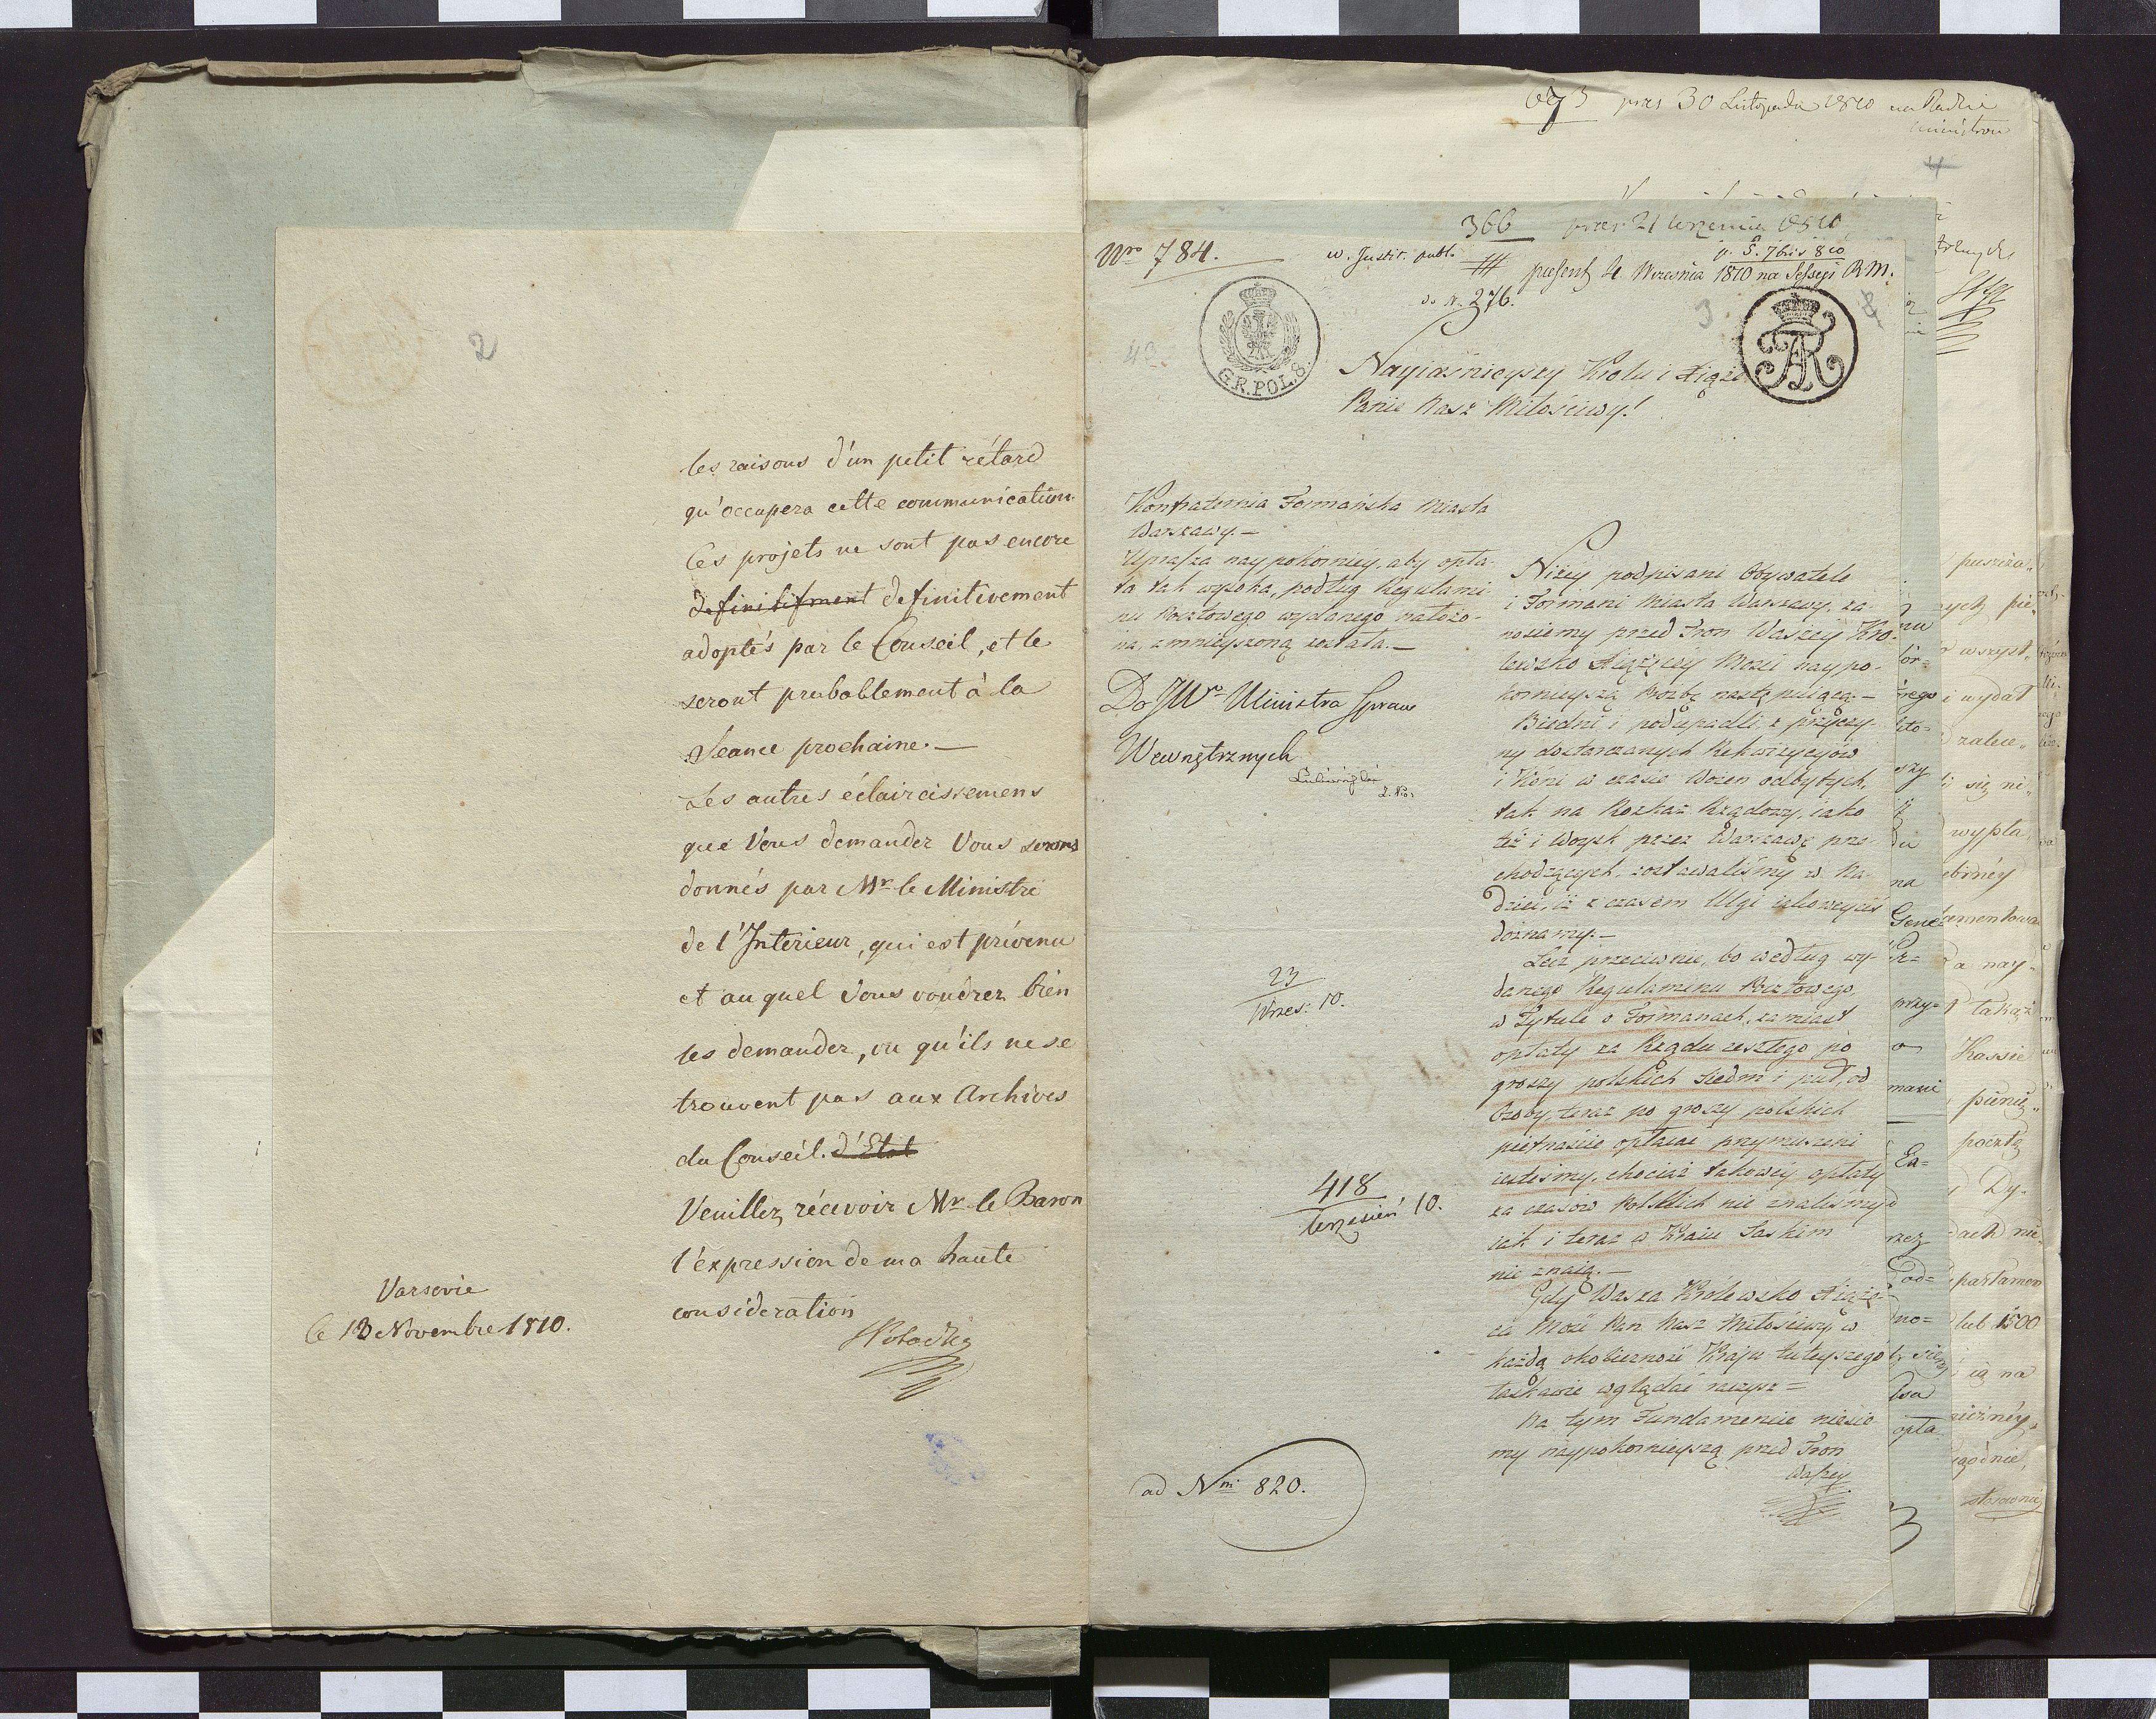 2
les raisons d'un petit rétard
qu'occupera cette communication.
Ces projets ne sont pas encore
definitifment definitivement
adoptés par le Conseil, et le
seront probablement à la
Seance prochaine.—
Les autres éclaircissemens
que Vous demandez Vous serons
donnés par Mr le Ministre
de l'Interieur, qui est prévenu
et au quel Vous voudrez bien
les demander, vu qu'ils ne se
trouvent pas aux Archives
du Conseil. d'Etat
Veuillez, récevoir Mr le Baron
l'expression de ma haute
consideration
Varsovie
le 13 Novembre 1810.
673 prez 30 Listopada 1810 na Radzie
Ministrow
4
366 prez 21 Września 1810
Nro 784.
w. Justit. publ.
p. 5. 7bris 810
present 4 Września 1810 na Sessyi R.M.
do N. 276.
3
G.R.POL.8.
Nayiaśnieyszy Krolu i Xiąże
Panie Nasz Miłościwy!
Konfraternia Formańska Miasta
Warszawy.—
Uprasza naypokorniey, aby opła-
ta tak wysoka, podług Regulami-
nu Pocztowego wydanego nałożo-
na, zmnieyszoną została.—
Do JWo Ministra Spraw
Wewnętrznych
23
Wrzes: 10.
418
Wrzesień 10.
ad Nm 820.
Niżey podpisani Obywatele
i Formani Miasta Warszawy, za-
nosiemy przed Tron Waszey Kro-
lewsko Xiążęcey Mości naypo-
kornieyszą Prozbę następuiącą.—
Biedni i podupadli z przyczy-
ny dostarczanych Rekwizycyiów
i Koni w czasie Woien odbytych,
tak na Rozkaz Rządowy, iako
też i Woysk przez Warszawę prze-
chodzących, zostawaliśmy w Na-
dziei, iż z czasem Ulgi iakoweyciś
doznamy.—
Lecz przeciwnie, bo według wy-
danego Regulaminu Pocztowego,
w Tytule o Formanach, zamiast
opłaty za Rządu zeszłego po
groszy polskich siedm i puł, od
Osoby, teraz po groszy polskich
piętnaście opłacac przymuszeni
iesteśmy, chociaż takowey opłaty
za czasow Polskich nie znaliśmy
iak i teraz w Kraiu Saskim
nie znaią.—
Gdy Wasza Królewsko Xiążę-
ca Mość Pan Nasz Miłościwy, w
każdą okoliczność Kraju tuteyszego
łaskawie wglądać raczysz=
Na tym Fundamencie niesie
my naypokornieyszą przed Tron
Waszey